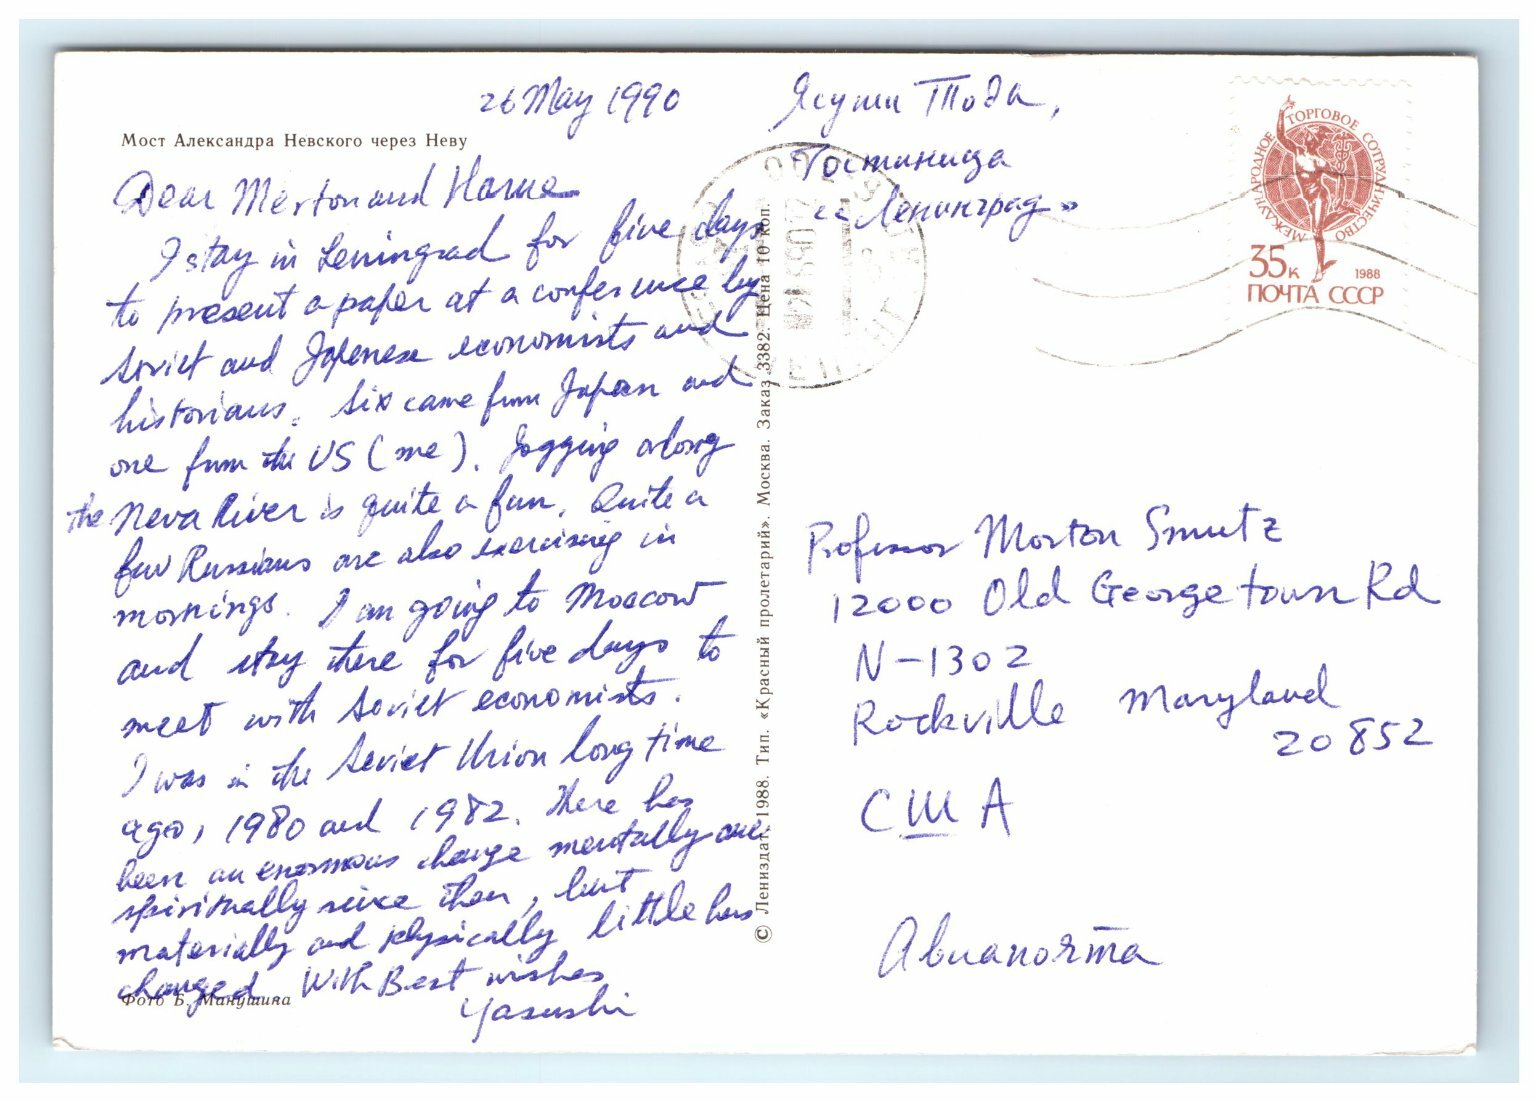 26 May 1990
Мост Александра Невского через Неву
Dear Morton and
I stay in Leningrad for five days
to present a paper at a conference by
Soviet and Japanese economists and
historians. Six came from Japan and
one from the US (me). Jogging along
the Neva River is quite a fun. Quite a
few Russians are also exercising in
mornings. I am going to Moscow
and stay there for five days to
meet with Soviet economists.
I was in the Soviet Union long time
ago, 1980 and 1982. There has
been an enormous change mentally and
spiritually since then, but
materially and physically little has
changed With Best wishes
Yasushi
Фото Б. Манушина
© Лениздат, 1988. Тип. «Красный пролетарий». Москва. Заказ 3382. Цена 10 коп.
Ясуши Тода,
Гостиница
«Ленинград»
МЕЖДУНАРОДНОЕ ТОРГОВОЕ СОТРУДНИЧЕСТВО
35к 1988
ПОЧТА СССР
Professor Morton Smutz
12000 Old Georgetown Rd
N-1302
Rockville Maryland
20852
США
Авиапочта